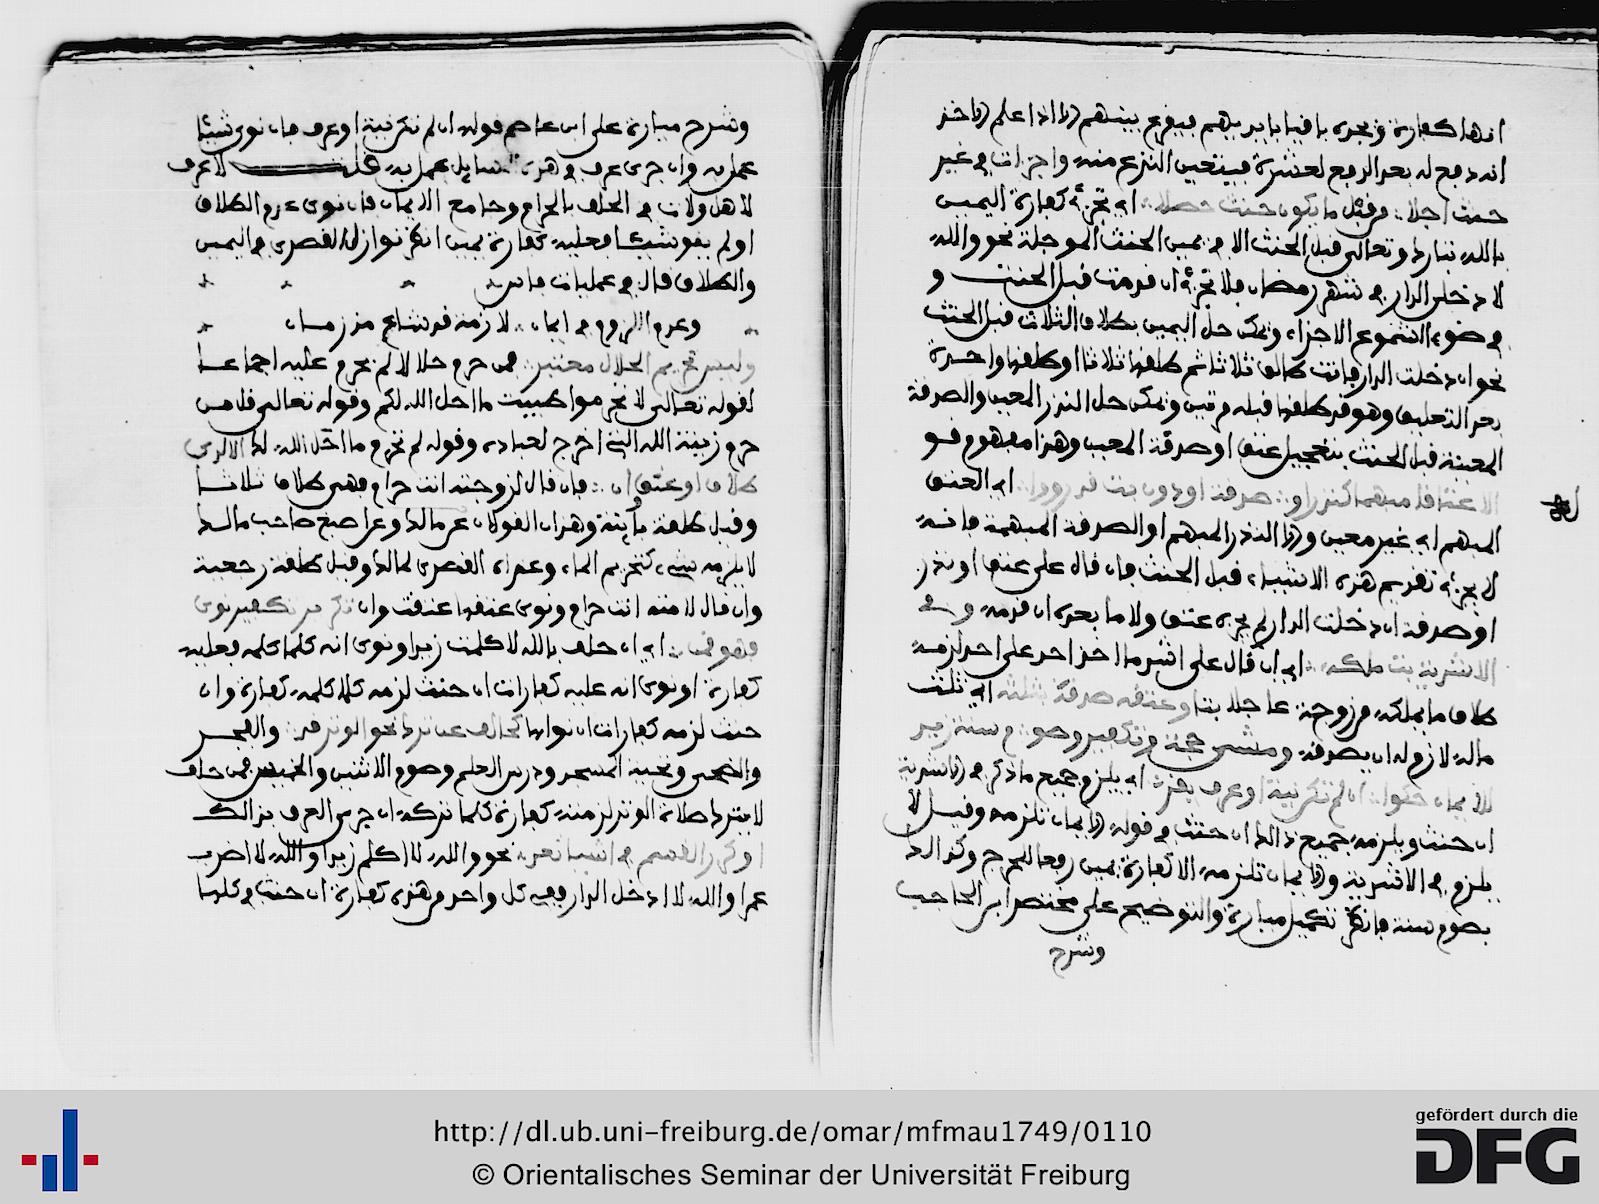 انها كفارة وتجده باقيا بايديهم فيفرع بينهم اذا علم
انه دفع له بعد الدفع لعشرة فيتعين النزع منه واجزات في غير
حنث اجلا ∴ وقبل ما يكون حنث حصلا ∴ اي تجزئ كفارة اليمين
بالله تبارك وتعالى قبل الحنث الا في يمين الحنث الموجلة نحو والله
لا دخلن الدار في شهر رمضان فلا تجزئ ان قدمت قبل الحنث و
في ضوء الشموع الاجزاء ويمكن حل اليمين بطلاق الثلاث قبل الحنث
نحو ان دخلت الدار فانت طالق ثلاثا ثم طلقها ثلاثا او طلقها واحدة
بعد التعليق وهو قد طلقها قبله مرتين ويمكن حل النذر المعين والصدقة
المعينة قبل الحنث بتعجيل عتق او صدقة المعين وهذا مفهوم قو
الا عتاقا مبهما كنذر او ∴ صدقة او دون بت قد رووا ∴ اي العتق
المبهم اي غير معين وكذا النذر المبهم او الصدقة المبهمة فانه
لا يجزئ تقديم هذه الاشياء قبل الحنث فان قال علي عتق او نذر
او صدقة ان دخلت الدار لم يجزه عتق ولا ما بعده ان قدمه وفي
الاشدية بت ملكه ∴ اي ان قال علي اشد ما اخذ احد على احد لزمه
طلاق ما يملكه من زوجة عاجلا بتا وعتقه صدقة بثلثه اي ثلث
ماله لازم له ان يصدقه ومشي حجة وتكفير وصوم سنة زيد
للايمان حكوا ∴ ان لم تكن نية او عرف يقر ∴ اي يلزم جميع ما ذكر في
ان حنث ويلزمه جميع ذلك ان حنث في قوله الايمان تلزمه وقيل لا
يلزم في الاشدية والايمان تلزمه الا كفارة يمين
بصوم سنة فانظر تكميل ميارة والتوضيح على مختصر ابن الحاجب
وشرح
وشرح ميارة على ابن عاصم قوله ان لم تكن نية او عرف فان نوى شيئا
عمل به وان جرى عرف في هذه المسايل عمل به لا عرف
لاهل ولات في الحلف بالحرام وجامع الايمان فان نوى عدم الطلاق
او لم ينو شيئا فعليه كفارة يمين انظر نوازل القصري في اليمين
والطلاق قال في عمليات فاس
وعدم اللزوم في ايمان ∴ لازمة قد شاع مذ زمان
وليس تحريم الحلال معتبر ∴ فمن حرم حلالا لم يحرم عليه اجماعا
لقوله تعالى لا تحرموا طيبت ما احل الله لكم وقوله تعالى قل من
حرم زينة الله التي اخرج لعباده وقوله لم تحرم ما احل الله لك الا لدى
طلاق او عتق ان ∴ فان قال لزوجته انت حرام فهي طلاق ثلاثا
وقيل طلقة باينة وهذان القولان عن مالك وعن اصبغ صاحب مالك
لا يلزمه شيء كتحريم الماء وعزاه القصري لمالك وقيل طلقة رجعية
وان قال لامته انت حرام ونوى عتقها عتقت وان تكرير تكفير نوى
فهو قمن ∴ اي ان حلف بالله لا كلمت زيدا ونوى انه كلما كلمه فعليه
كفارة او نوى انه عليه كفارات ان حنث لزمه كلما كلمه كفارة وان
حنث لزمه كفارات ان نواها كحالف عن ترك نحو الوتر قر ∴ والفجر
والضحى وتحية المسجد ودرس العلم وصوم الاثنين والخميس فمن حلف
لا يترك صلاة الوتر لزمته كفارة كلما تركه ان جرى العرف بذالك
او كرر القسم في اشيا تعد ∴ نحو والله لا اكلم زيدا والله لا اضرب
عمرا والله لا ادخل الدار ففي كل واحد من هذه كفارة ان حنث في كلها
http://dl.ub.uni-freiburg.de/omar/mfmau1749/0110
© Orientalisches Seminar der Universität Freiburg
gefördert durch die
DFG